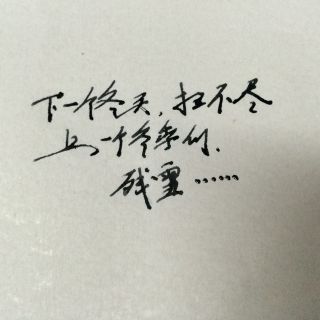 下一个冬天,扫不尽
上一个冬季的.
残雪……